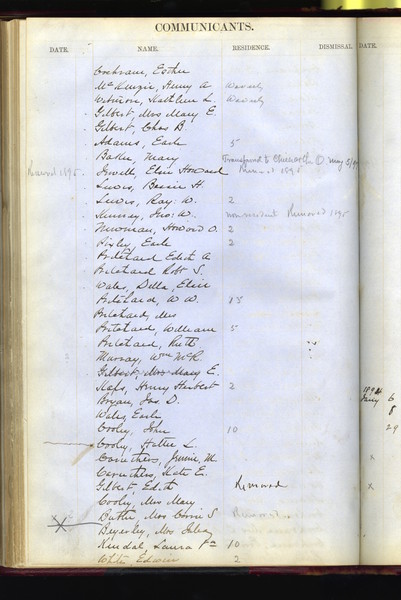 COMMUNICANTS.
DATE. NAME. RESIDENCE. DISMISSAL DATE.
Cochrane, Esther
McKenzie, Henry A Waverly
Wetmore, Kathleen L. Waverly
Gilbert, Mrs Mary E.
Gilbert, Chas B.
Adams, Earle 5
Baker, Mary Transferred to May 5/97
Removed 1895 Jewell, Elsie Howard Removed 1895
Lewis, Bessie H.
Lewis, Ray. W. 2
Kinney, Jno. W. nonresident Removed 1895
Newman, Howard O. 2
Pixley, Earle 2
Pritchard Edith A
Pritchard Robt S.
Wales, Della, Elsie
Pritchard, W. W. 15
Pritchard, Mrs
Pritchard, William 5
Pritchard, Ruth
Murray, Wm McK.
Gilbert, Mrs Mary E.
Kaps, Henry Herbert 2 1894
Bryan, Jas D. 6
Wales, Earle 8
Cooley, John 10 29
Cooley, Hattie L.
Caruthers, Jennie M. x
Caruthers, Kate E.
Gilbert, Edith Removed x
Cooley, Mrs Mary
Butler, Mrs Carrie S
Beyerley, Mrs Julia
Kendal, Laura 10
White, Edwin 2